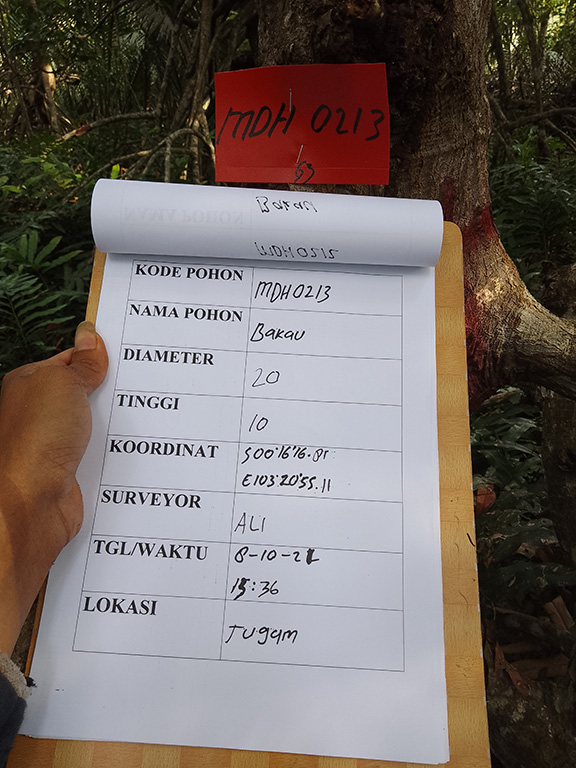 MDH 0213
53
Bakau
MDH0212
KODE POHON MDH0213
NAMA POHON Bakau
DIAMETER 20
TINGGI 10
KOORDINAT S00°16'16.81
E103°20'55.11
SURVEYOR ALI
TGL/WAKTU 8-10-21
15:36
LOKASI Tugam